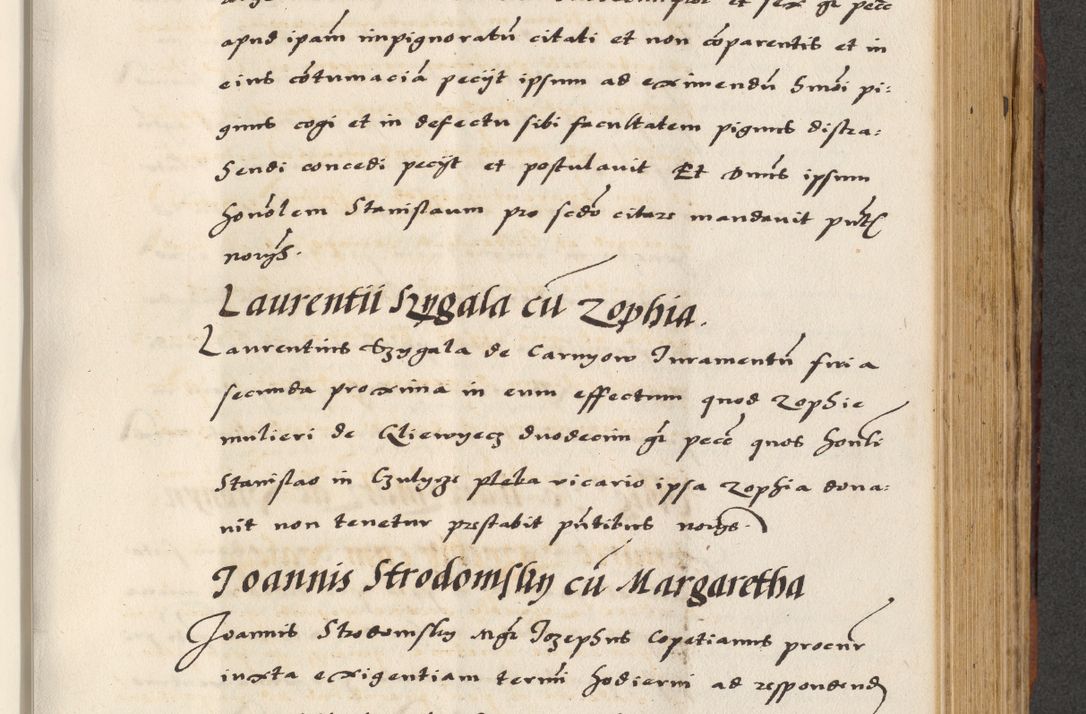 apud ipam̄ impignoratū citati et non cōparentis et in
eius cōtumaciā pecijt ipsum ad eximendū hmōi pi:
gnus cogi et in defectu sibi facultatem pignus distra:
hendi concedi pecijt et postulavit Et Dnūs ipsum
honōlem Stanislaum pro sedō citare mandavit pn̄tˀ
norijs.
Laurentii Szygala cū Zophia.
Laurentius Szygala de Carnyow Iuramentū feria
secunda proxima in eum effectum quod Zophie
mulieri de Kliewyecz duodecim gr̄ pecē quos honli
Stanislao in Czulycze pleba vicario ipsa Zophia dona:
vit non tenetur prestabit pn̄tibus norijs.
Joannis Strodomsky cū Margaretha
Joannis Strodomsky Mgr̄ Jozephus Copetianus procur
iuxta exigentiam termī hodierni ad respondend